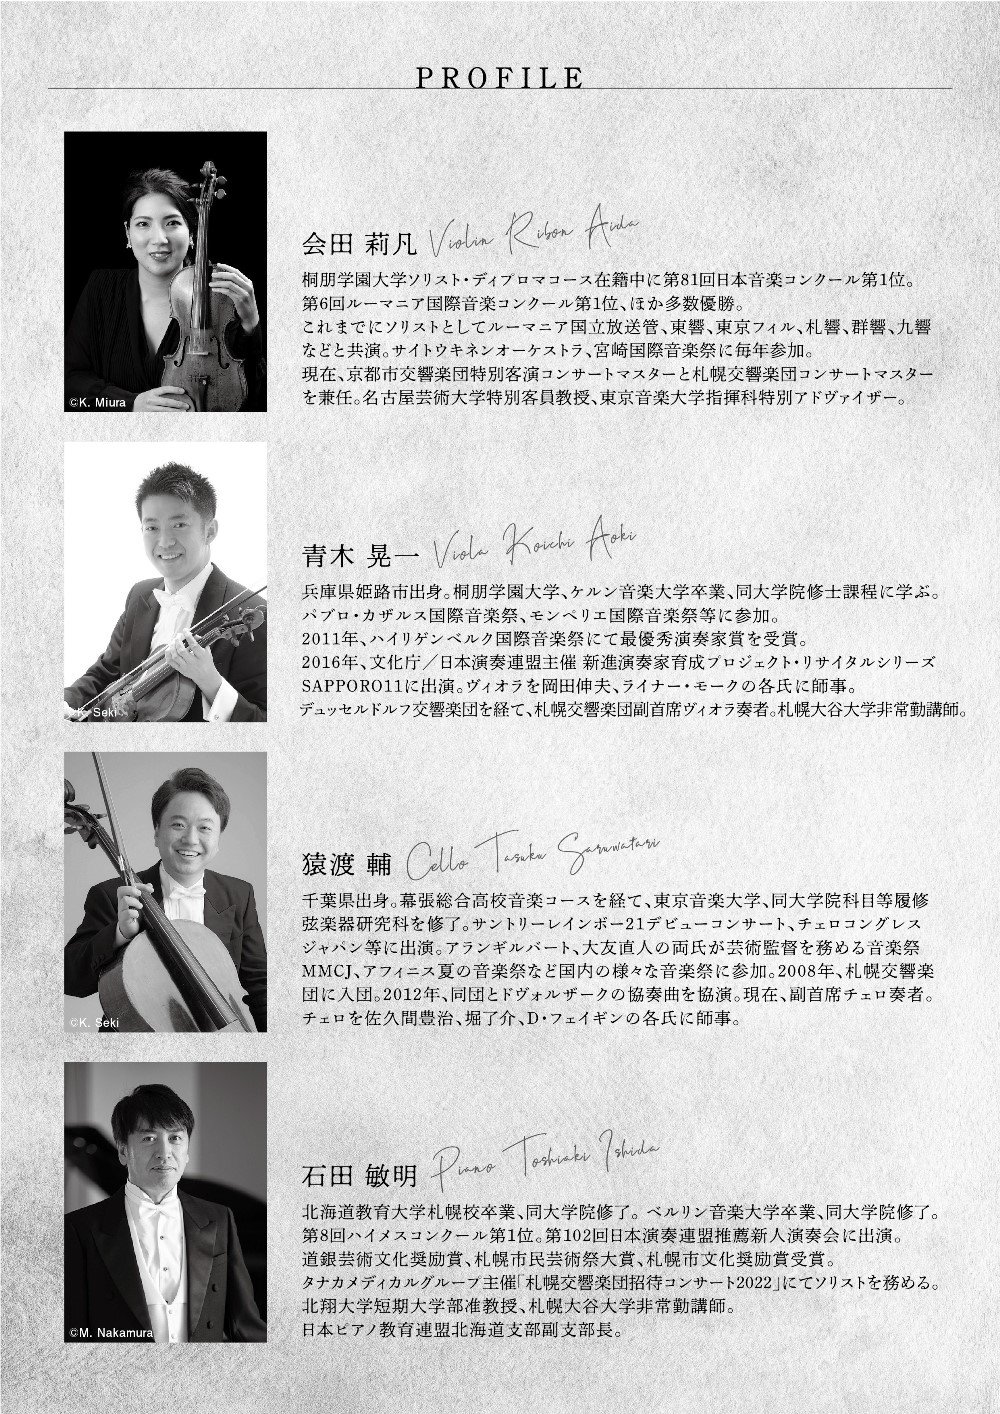 PROFILE
会田 莉凡 Violin Ribon Aida
桐朋学園大学ソリスト・ディプロマコース在籍中に第81回日本音楽コンクール第1位。
第6回ルーマニア国際音楽コンクール第1位、ほか多数優勝。
これまでにソリストとしてルーマニア国立放送管、東響、東京フィル、札響、群響、九響
などと共演。サイトウキネンオーケストラ、宮崎国際音楽祭に毎年参加。
現在、京都市交響楽団特別客演コンサートマスターと札幌交響楽団コンサートマスター
を兼任。名古屋芸術大学特別客員教授、東京音楽大学指揮科特別アドヴァイザー。
©K. Miura
青木 晃一 Viola Koichi Aoki
兵庫県姫路市出身。桐朋学園大学、ケルン音楽大学卒業、同大学院修士課程に学ぶ。
パブロ・カザルス国際音楽祭、モンペリエ国際音楽祭等に参加。
2011年、ハイリゲンベルク国際音楽祭にて最優秀演奏家賞を受賞。
2016年、文化庁／日本演奏連盟主催 新進演奏家育成プロジェクト・リサイタルシリーズ
SAPPORO11に出演。ヴィオラを岡田伸夫、ライナー・モークの各氏に師事。
デュッセルドルフ交響楽団を経て、札幌交響楽団副首席ヴィオラ奏者。札幌大谷大学非常勤講師。
©K. Seki
猿渡 輔 Cello Tasuku Saruwatari
千葉県出身。幕張総合高校音楽コースを経て、東京音楽大学、同大学院科目等履修
弦楽器研究科を修了。サントリーレインボー21デビューコンサート、チェロコングレス
ジャパン等に出演。アランギルバート、大友直人の両氏が芸術監督を務める音楽祭
MMCJ、アフィニス夏の音楽祭など国内の様々な音楽祭に参加。2008年、札幌交響楽
団に入団。2012年、同団とドヴォルザークの協奏曲を協演。現在、副首席チェロ奏者。
チェロを佐久間豊治、堀了介、D・フェイギンの各氏に師事。
©K. Seki
石田 敏明 Piano Toshiaki Ishida
北海道教育大学札幌校卒業、同大学院修了。ベルリン音楽大学卒業、同大学院修了。
第8回ハイメスコンクール第1位。第102回日本演奏連盟推薦新人演奏会に出演。
道銀芸術文化奨励賞、札幌市民芸術祭大賞、札幌市文化奨励賞受賞。
タナカメディカルグループ主催「札幌交響楽団招待コンサート2022」にてソリストを務める。
北翔大学短期大学部准教授、札幌大谷大学非常勤講師。
日本ピアノ教育連盟北海道支部副支部長。
©M. Nakamura